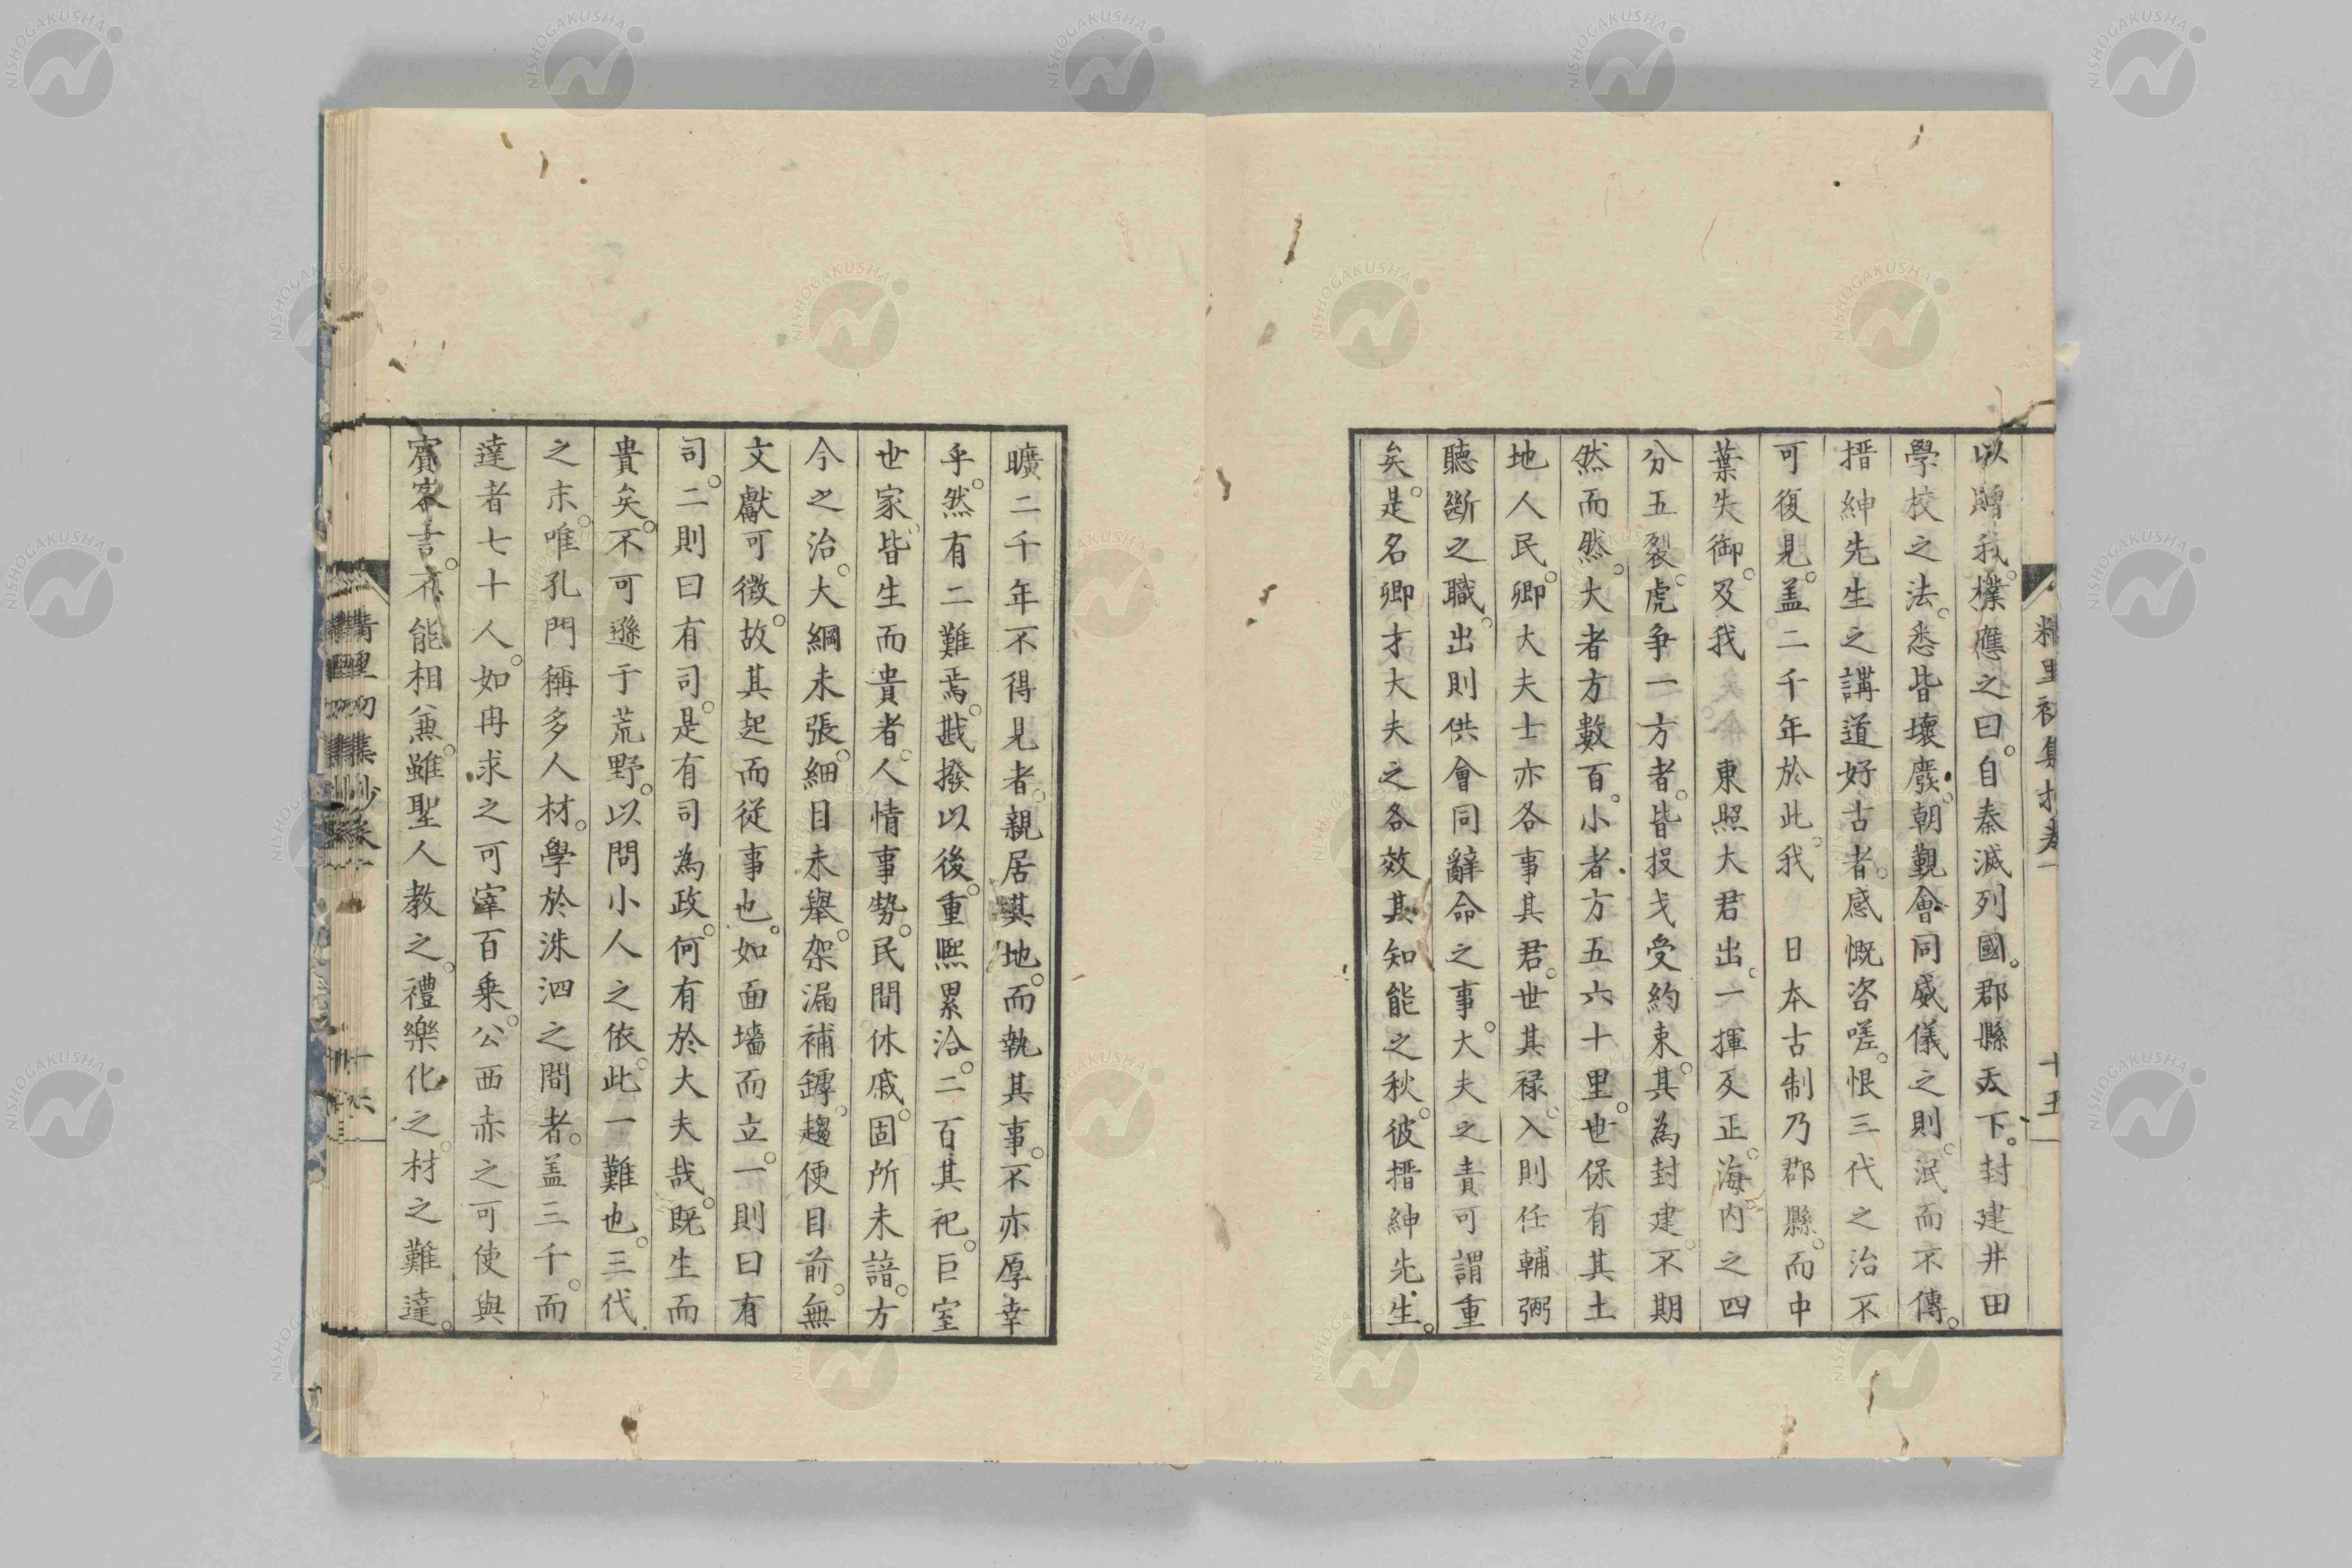 以贈我。樸應之曰。自秦滅列國。郡縣天下。封建井田
學校之法。悉皆壞廢。朝覲會同威儀之則。泯而不傳。
搢紳先生之講道好古者。感慨咨嗟。恨三代之治不
可復見。盖二千年於此。我 日本古制乃郡縣。而中
葉失御。及我 東照大君出。一揮反正。海內之四
分五裂。虎爭一方者。皆投戈受約束。其為封建。不期
然而然。大者方數百。小者方五六十里。世保有其土
地人民。卿大夫士亦各事其君。世其祿。入則任輔弼
聽斷之職。出則供會同辭命之事。大夫之責可謂重
矣。是名卿才大夫之各效其知能之秋。彼搢紳先生。
十五
曠二千年不得見者。親居其地。而執其事。不亦厚幸
乎。然有二難焉。戡撥以後。重熙累洽。二百其祀。巨室
世家。皆生而貴者。人情事勢。民間休戚。固所未諳。方
今之治。大綱未張。細目未舉。架漏補罅。趨便目前。無
文獻可徵。故其起而從事也。如面墻而立。一則曰有
司。二則曰有司。是有司為政。何有於大夫哉。既生而
貴矣。不可遜于荒野。以問小人之依。此一難也。三代
之末。唯孔門稱多人材。學於洙泗之間者。盖三千。而
達者七十人。如冉求之可宰百乗。公西赤之可使與
賓客言。不能相兼。雖聖人教之。禮樂化之。材之難達。